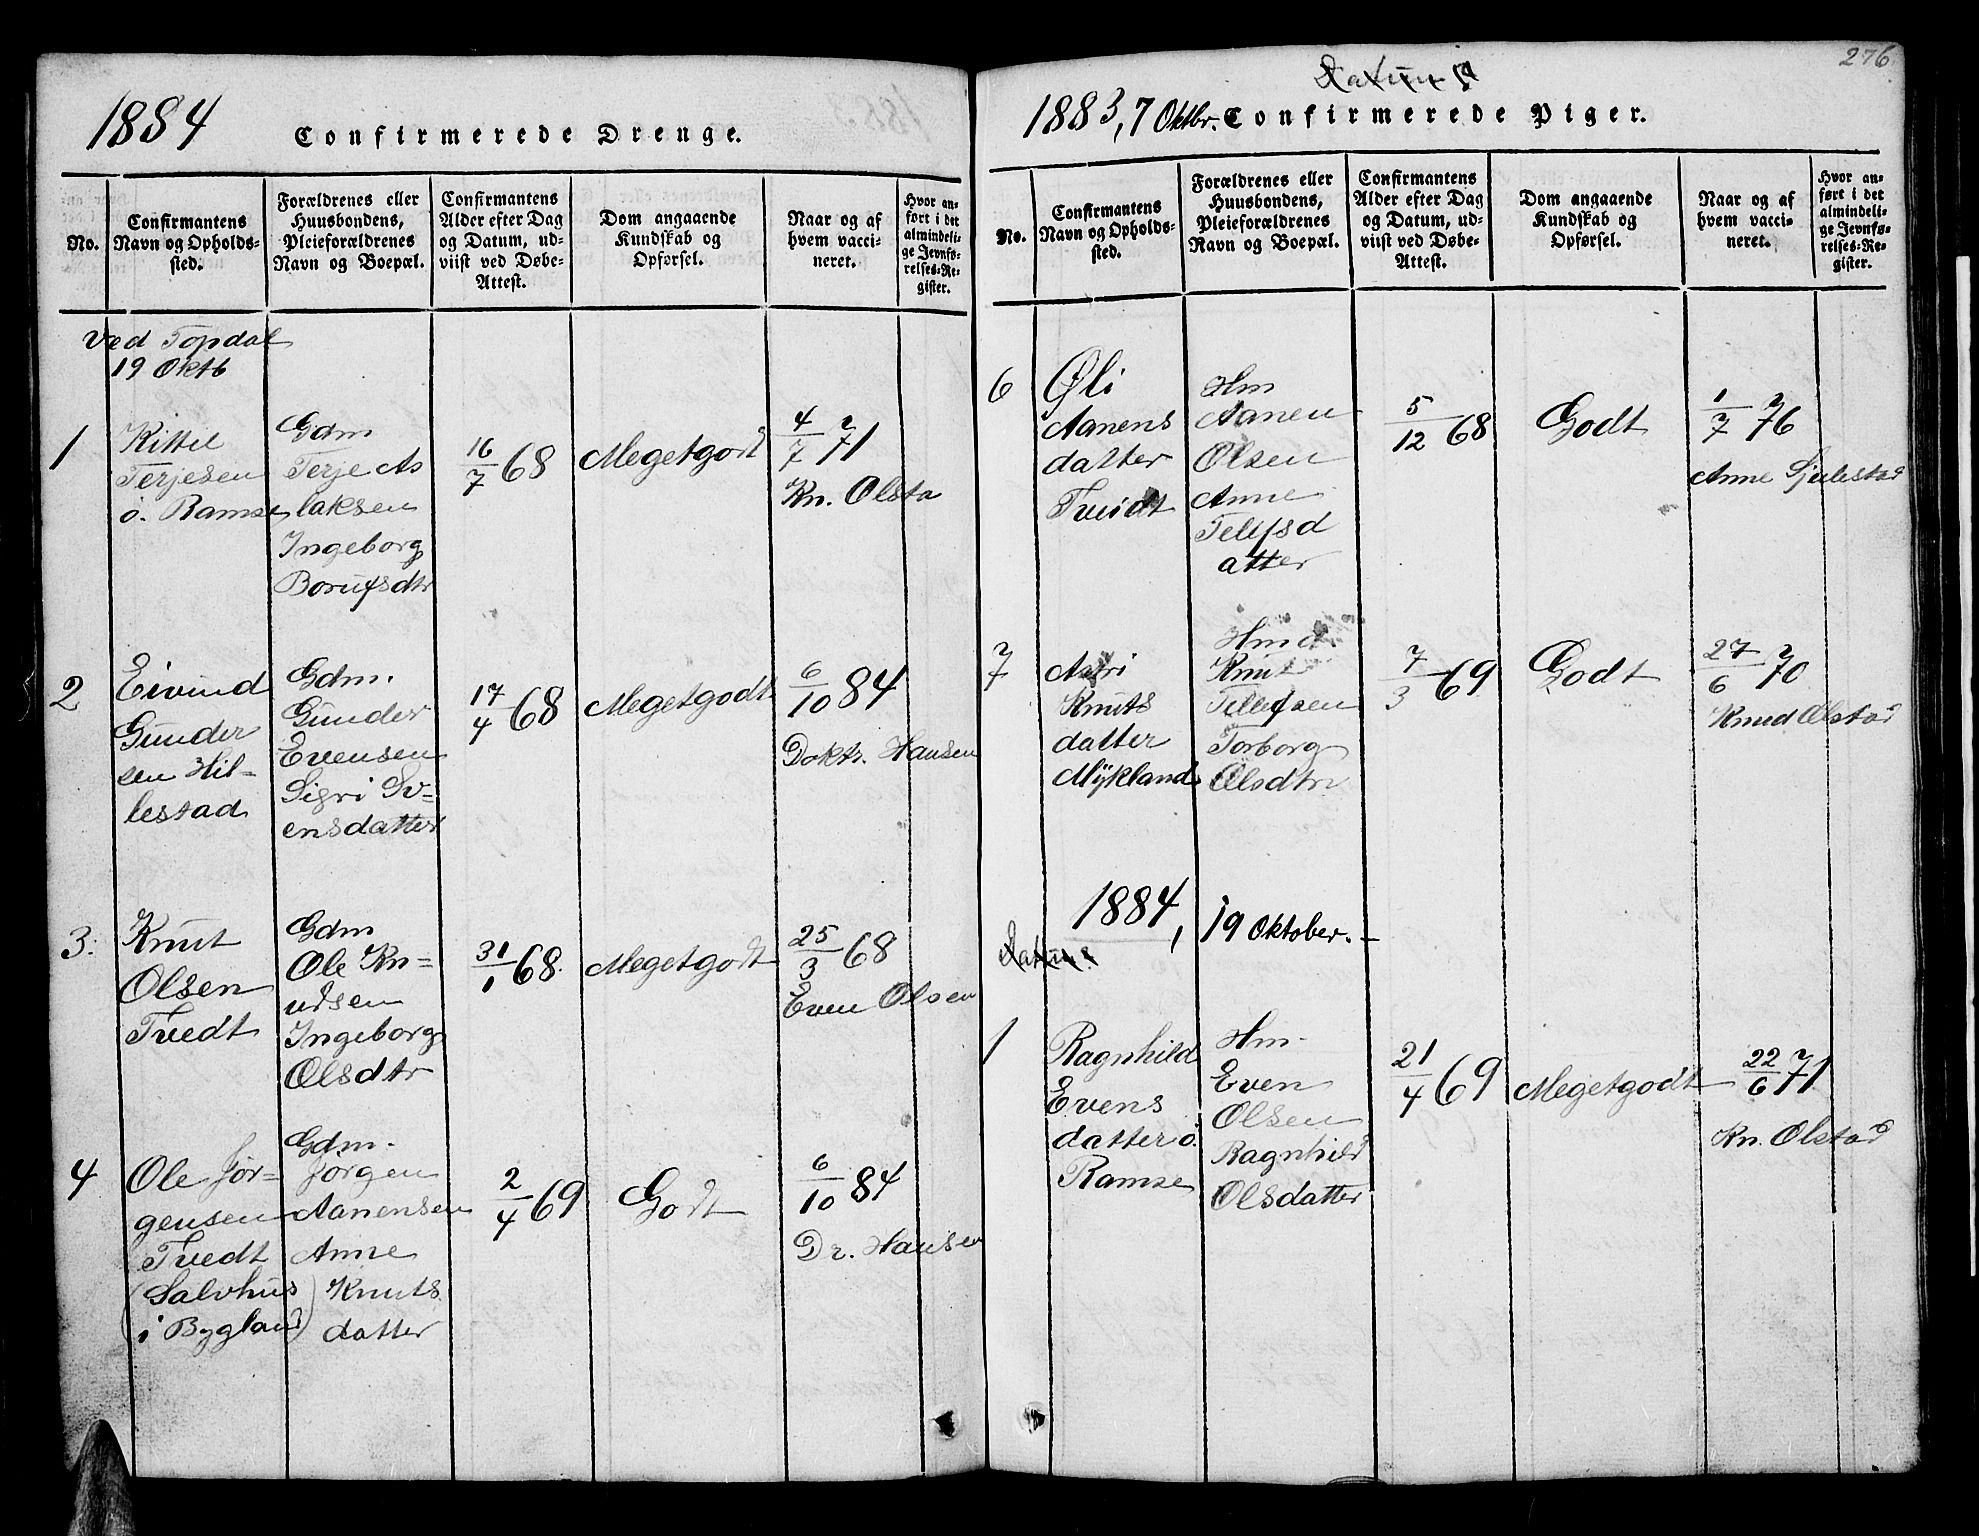 1884
Confirmerede Drenge.
No.
Confirmantens
Navn og Opholds-
sted.
Forældrenes eller
Huusbondens,
Pleieforældrenes
Navn og Boepæl.
Confirmantens
Alder efter Dag
og Datum, ud-
viist ved Døbe-
Attest.
Dom angaaende
Kundskab og
Opførsel.
Naar og af
hvem vacci-
neret.
Hvor an-
ført i det
almindeli-
ge Jevnfø-
relses-Re-
gister.
Ved Topdal
19 Oktb
1
Kittil
Terjesen
ö. Ramse
Gdm
Terje As
laksen
Ingeborg
Borufsdtr
16/7 68
Megetgodt
4/7 71
Kn. Olsta
2
Eivind
Gunder
sen Hil-
lestad
Gdm.
Gunder
Evensen
Sigri Sv-
ensdatter
17/4 68
Megetgodt
6/10 84
Doktr. Hansen
3.
Knut
Olsen
Tvedt
Gdm
Ole Kn-
udsen
Ingeborg
Olsdtr
31/1 68.
Megetgodt
25/3 68
Even Olsen
4
Ole Jör-
gensen
Tvedt
(Salvhus
i Bygland)
Gdm.
Jörgen
Aanensen
Anne
Knuts
datter
2/4 69
Godt
6/10 84
Dr. Hansen
276.
1883, 7 Oktbr.
Confirmerede Piger.
No.
Confirmantens
Navn og Opholds-
sted.
Forældrenes eller
Huusbondens,
Pleieforældrenes
Navn og Boepæl.
Confirmantens
Alder efter Dag
og Datum, ud-
viist ved Døbe-
Attest.
Dom angaaende
Kundskab og
Opførsel.
Naar og af
hvem vacci-
neret.
Hvor an-
ført i det
almindeli-
ge Jevnfø-
relses-Re-
gister.
6
Øli
Aanens
datter
Tveidt
Hm
Aanen
Olsen
Anne
Telefsd
atter
5/12 68
Godt
1/7 76
Anne
7
Knuts
datter
Mÿkland
Knut
Tellefsen
Torborg
Olsdtr
7/3 69
Godt
27/6 70
Knud Olstad
1884, 19 Oktober.
1
Ragnhild
Evens
datter ö.
Ramse
Hm.
Even
Olsen
Ragnhild
Olsdatter
21/4 69
Megetgodt
22/6 71
Kn. Olstad